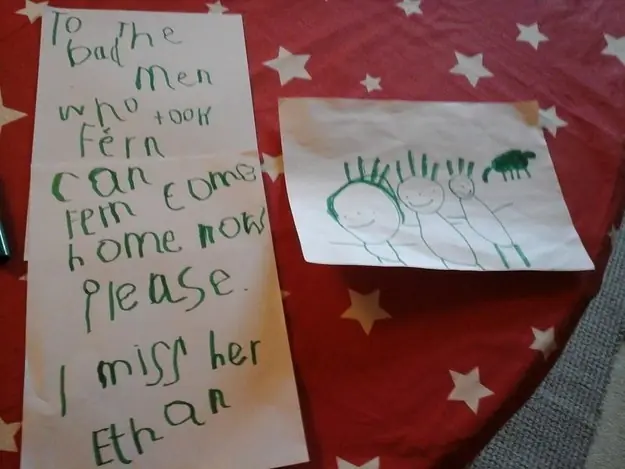 To The
bad
men
who took
Fern
can
Fern come
home now
please.
I miss her
Ethan